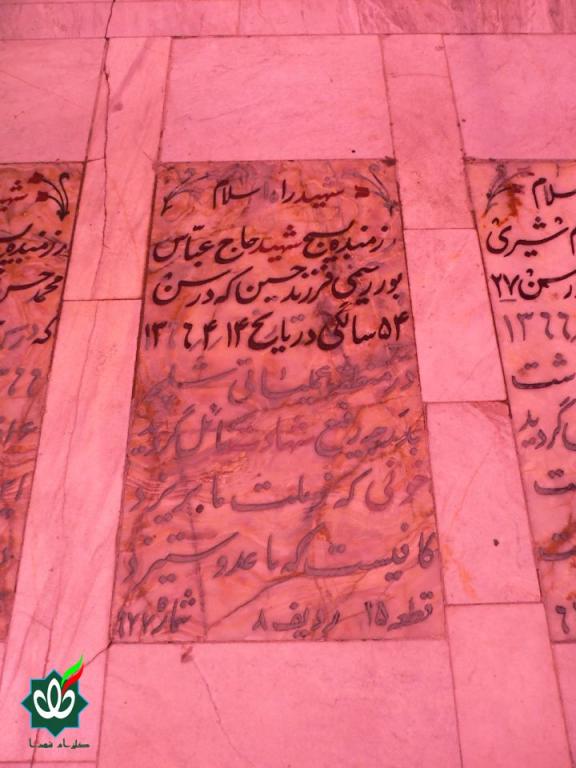 شهید راه اسلام
رزمنده بسیج شهید حاج عباس
پور رحیمی فرزند حسین که در سن
۵۴ سالگی در تاریخ ۱۳۶۶٫۴٫۱۴
در منطقه عملیاتی
بدرجه رفیع شهادت نائل گردید
خونی که ز ملت ما بریزد
کافیست که با عدو ستیزد
قطعه ۲۵ ردیف ۸ شماره ۹۲۲
سلام
شیری
سن ۲۷
۱۳۶۶
گردید
شهید
محمد حسن
که در
گلزار شهدا